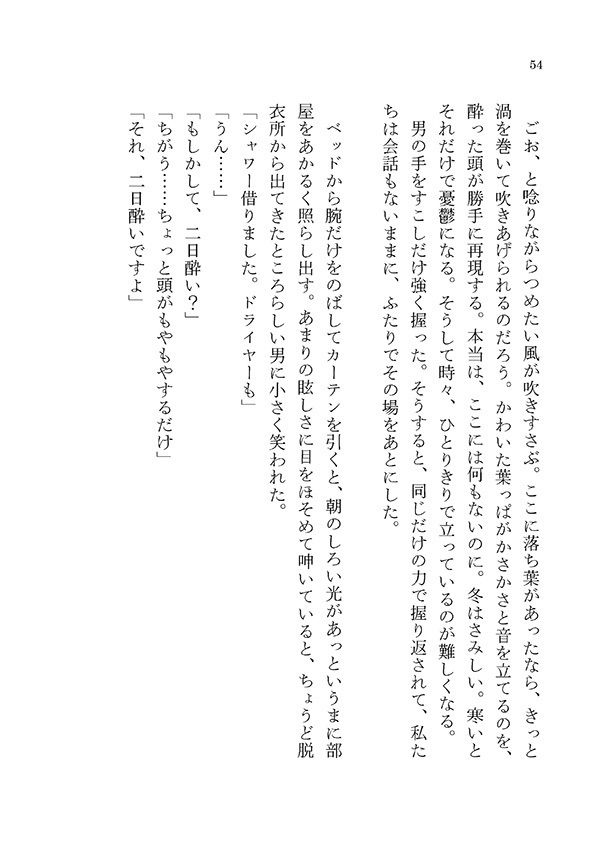 54
　ごお、と唸りながらつめたい風が吹きすさぶ。ここに落ち葉があったなら、きっと
渦を巻いて吹きあげられるのだろう。かわいた葉っぱがかさかさと音を立てるのを、
酔った頭が勝手に再現する。本当は、ここには何もないのに。冬はさみしい。寒いと
それだけで憂鬱になる。そうして時々、ひとりきりで立っているのが難しくなる。
　男の手をすこしだけ強く握った。そうすると、同じだけの力で握り返されて、私た
ちは会話もないままに、ふたりでその場をあとにした。
　ベッドから腕だけをのばしてカーテンを引くと、朝のしろい光があっというまに部
屋をあかるく照らし出す。あまりの眩しさに目をほそめて呻いていると、ちょうど脱
衣所から出てきたところらしい男に小さく笑われた。
「シャワー借りました。ドライヤーも」
「うん……」
「もしかして、二日酔い？」
「ちがう……ちょっと頭がもやもやするだけ」
「それ、二日酔いですよ」